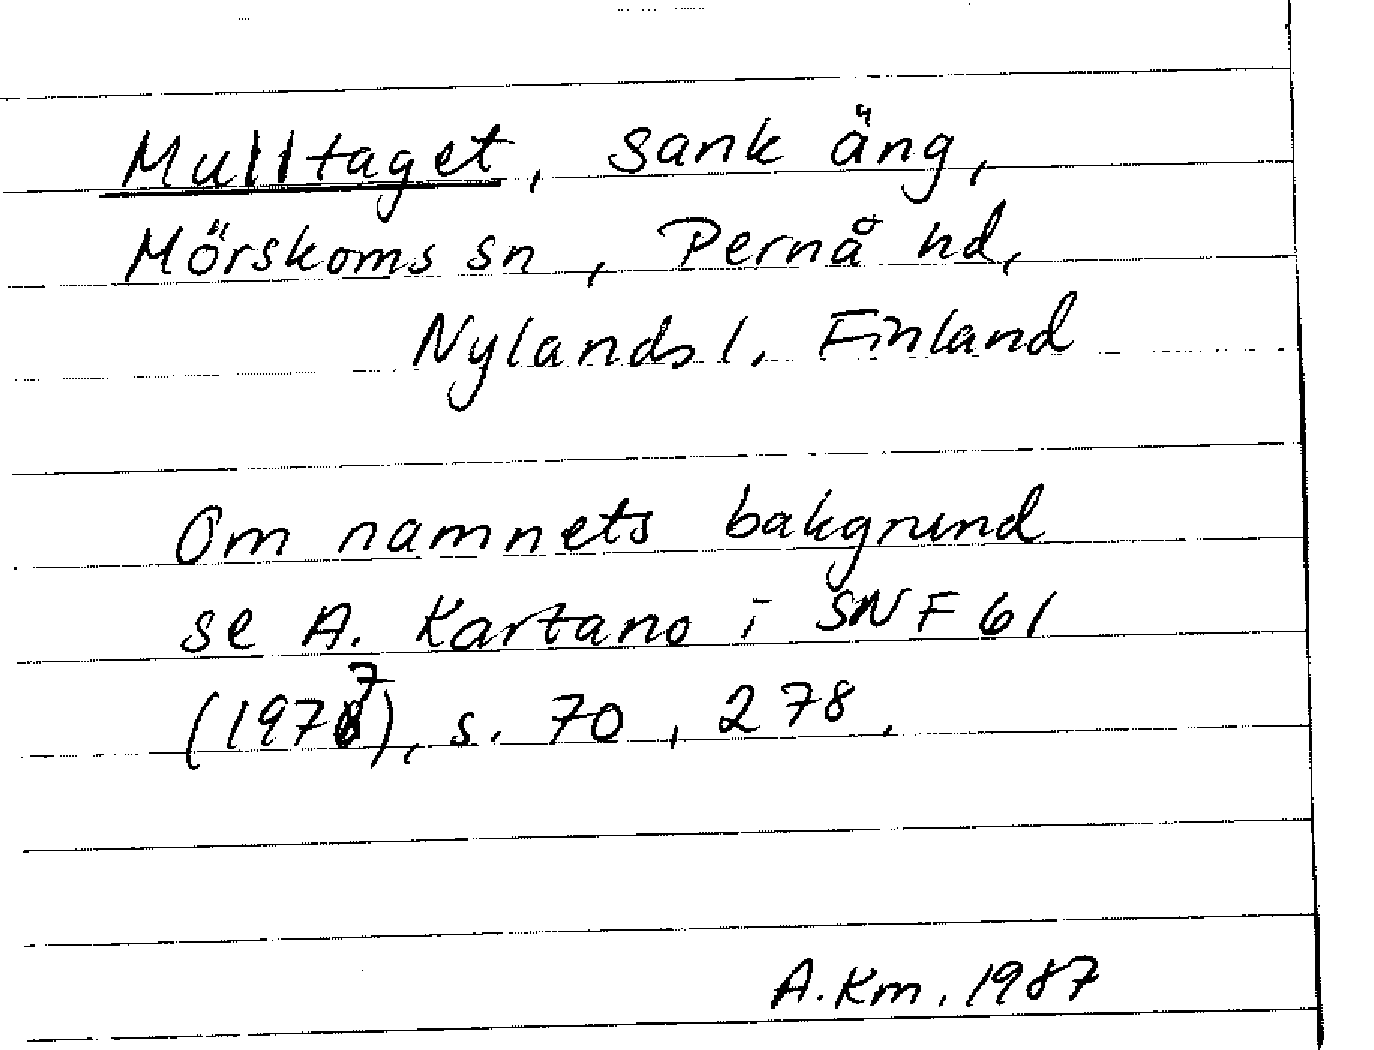 Mulltaget, sank äng,
Mörskoms sn, Pernå hd,
Nylands l, Finland
Om namnets bakgrund
se A. Kartano i SNF 61
(1977), s. 70, 278.
A.Km. 1987